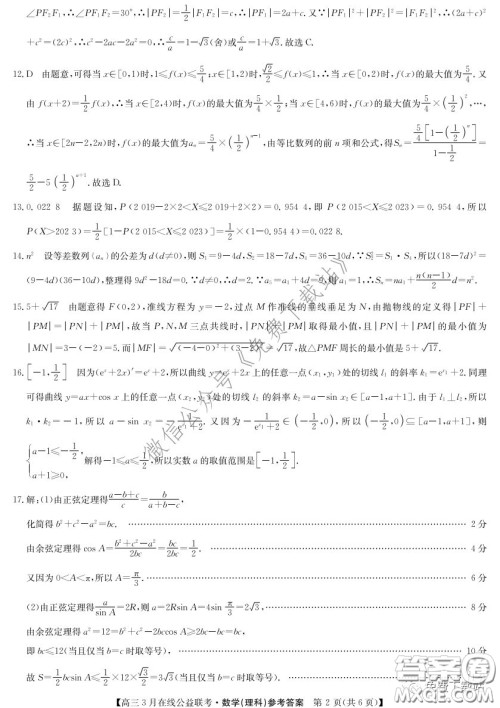 ∠PF₂F₁,∴∠PF₂F₁=30°,∴|PF₁|=1/2|F₁F₂|=c,∴|PF₂|=2a+c. 又∵|PF₁|²+|PF₂|²=|F₁F₂|²,∴(2a+c)²
+c²=(2c)²,∴c²-2ac-2a²=0,∴c/a=1-√3(舍)或c/a=1+√3. 故选 C.
12. D 由题意,可得当 x∈[0,1)时,1≤f(x)≤5/4;x∈[1,2)时,√2/2≤f(x)≤1,∴当 x∈[0,2)时,f(x)的最大值为5/4. 又
由 f(x+2)=1/2f(x),∴当 x∈[2,4)时,f(x)的最大值为5/4×1/2;当 x∈[4,6)时,f(x)的最大值为5/4×(1/2)²,…,
∴当 x∈[2n-2,2n)时,f(x)的最大值为aₙ=5/4×(1/2)ⁿ⁻¹,由等比数列的前 n 项和公式,得Sₙ=5/4[1-(1/2)ⁿ]/(1-1/2)=
5/2-5(1/2)ⁿ⁺¹. 故选 D.
13. 0.022 8 据题设知,P(2 019-2×2<X≤2 019+2×2)=0.954 4,即 P(2015<X≤2 023)=0.954 4,所以
P(X>202 3)=1/2[1-P(2015<X≤2 023)]=1/2×(1-0.954 4)=0.022 8.
14. n² 设等差数列{aₙ}的公差为 d(d≠0),则 S₁=9-4d,S₂=18-7d,S₅=36-10d,∵S₂²=S₁·S₅,所以(18-7d)²=
(9-4d)(36-10d),整理得 9d²-18d=0.∵d≠0,∴d=2.∵a₅=a₁+4d=9,则 a₁=1,所以 Sₙ=na₁+n(n-1)/2d=n².
15. 5+√17 由题意得 F(0,2),准线方程为 y=-2,过点 M 作准线的垂线垂足为 N,由抛物线的定义得|PF|+
|PM|=|PN|+|PM|,故当 P、N、M 三点共线时,|PN|+|PM|取得最小值,且|PN|+|PM|的最小值为
|MN|=3-(-2)=5. 而|MF|=√((-4-0)²+(3-2)²)=√17,故△PMF 周长的最小值是 5+√17.
16. [-1,1/2] 因为(eˣ+2x)′=eˣ+2,所以曲线 y=eˣ+2x 上的任意一点(x₁,y₁)处的切线 l₁ 的斜率 k₁=eˣ₁+2. 同理
可得曲线 y=ax+cos x 上的任意一点(x₂,y₂)处的切线 l₂ 的斜率 k₂=a-sin x₂∈[a-1,a+1]. 由于 l₁⊥l₂,所以
k₁·k₂=-1,所以 a-sin x₂=-1/(eˣ₁+2). 又因为-1/(eˣ₁+2)∈(-1/2,0),所以(-1/2,0)⊆[a-1,a+1],则
{a-1≤-1/2, a+1≥0, 解得-1≤a≤1/2,所以实数 a 的取值范围是[-1,1/2].
17. 解:(1)由正弦定理得(a-b+c)/c=b/(a+b-c),
化简得 b²+c²-a²=bc. 2 分
由余弦定理得 cos A=(b²+c²-a²)/2bc=bc/2bc=1/2. 4 分
又因为 0<A<π,所以 A=π/3. 6 分
(2)由正弦定理得a/sin A=2R,则 a=2Rsin A=4sin π/3=2√3, 8 分
由余弦定理得 a²=12=b²+c²-2bccos A≥2bc-bc=bc,
即 bc≤12(当且仅当 b=c 时取等号), 10 分
故 S=1/2bcsin A≤1/2×12×√3/2=3√3(当且仅当 b=c 时取等号).
【高三 3 月在线公益联考·数学(理科)参考答案 第 2 页(共 6 页)】
微信公众号《免费下载站》